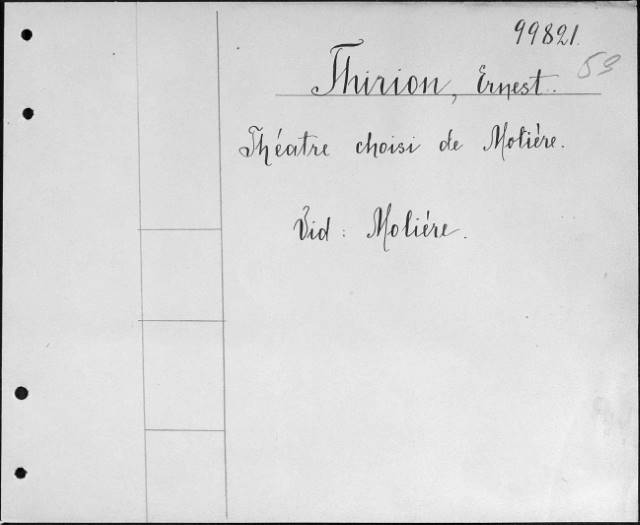 99821.
53
Thirion, Ernest.
Théatre choisi de Molière.
Vid: Moliére.